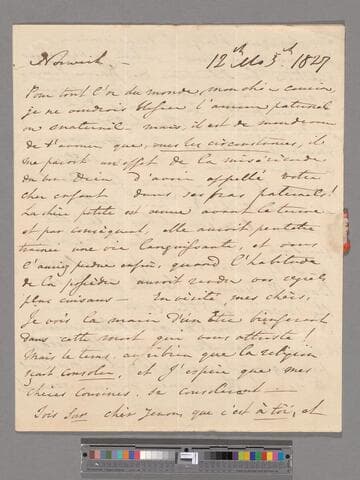 Norwich — 12th Mo 5th 1827
Pour tout l'or du monde, mon cher cousin,
je ne voudrois blesser l'amour paternel
ou maternel — mais, il est de mon devoir
de t'avouer que, vues les circonstances, il
me paroit un effet de la miséricorde
du bon Dieu d'avoir appellé votre
cher enfant dans ses bras paternels!
La chère petite est venue avant le terme
et par conséquent, elle auroit peutetre
trainée une vie languissante, et vous
l'auriez perdue enfin, quand l'habitude
de la posséder auroit rendu vos regrets
plus cuisans — la vérité mes chers,
Je vois la main d'un Etre bienfaisant
dans cette mort que vous attriste!
Mais le tems, aussi bien que la religion
scait consoler, et J'espère que mes
chères Cousines se consoleront —
Sois sur cher que c'est à toi, et